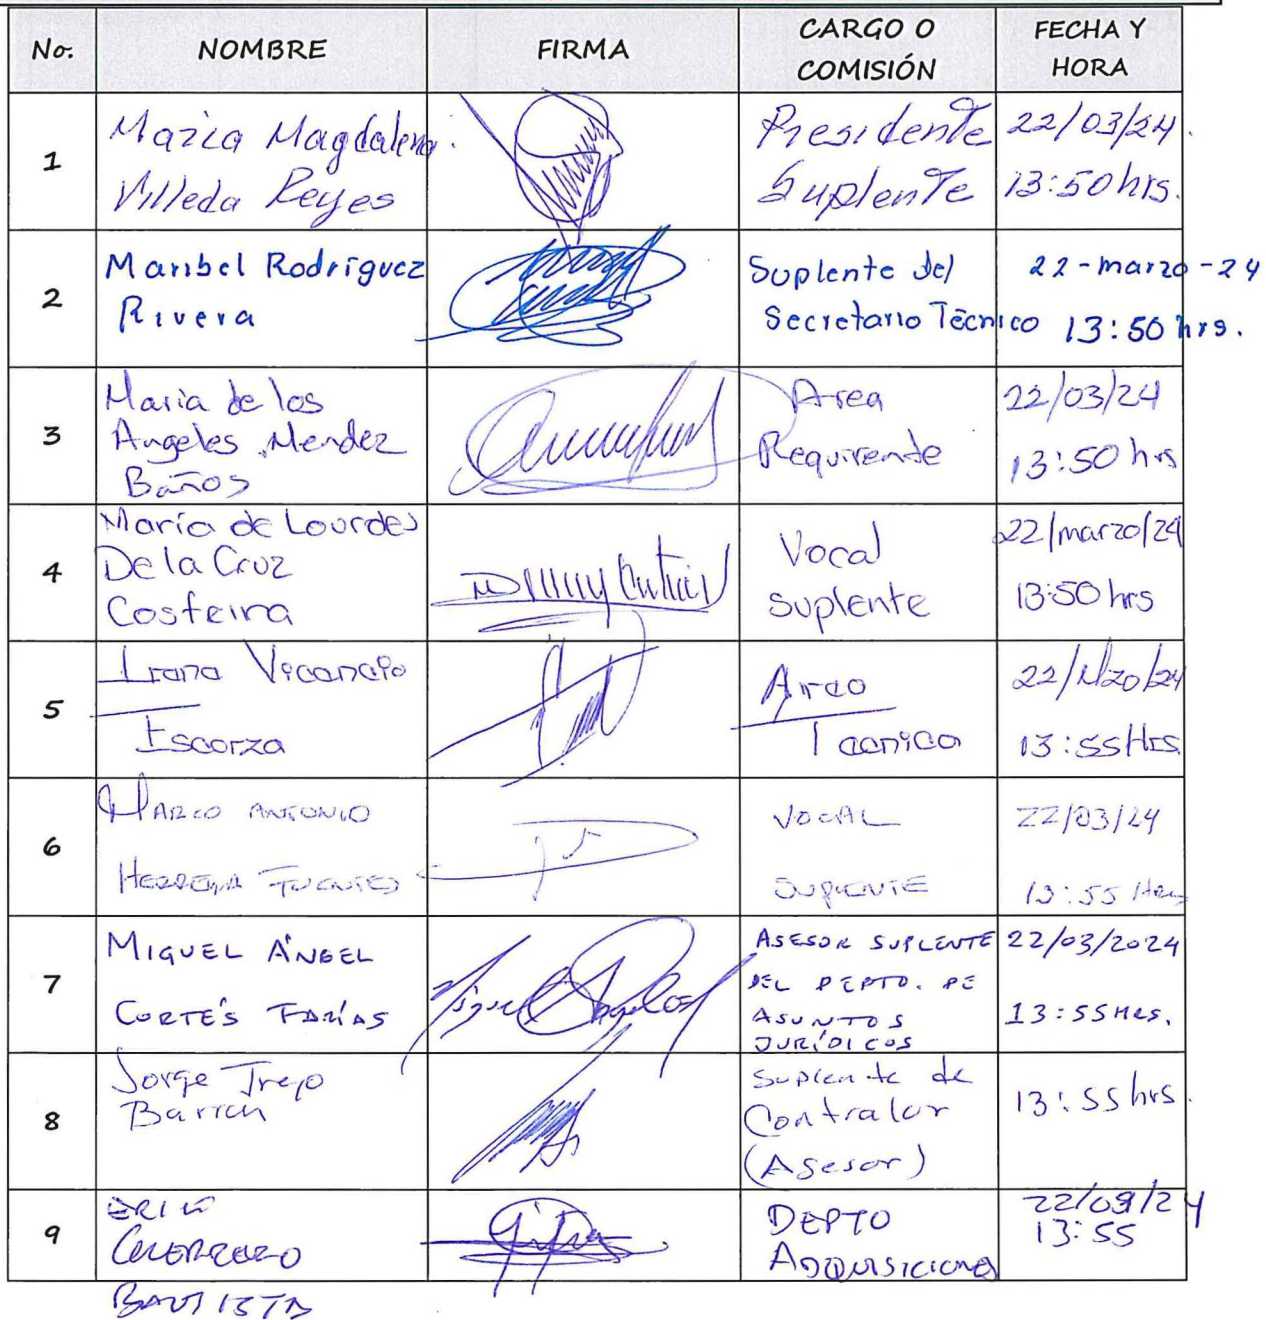 No. NOMBRE FIRMA CARGO O COMISIÓN FECHA Y HORA
1
Maria Magdalena
Villeda Reyes
Presidente
Suplente
22/03/24.
13:50 hrs.
2
Maribel Rodriguez
Rivera
Suplente del
Secretario Técnico
22-marzo-24
13:50 hrs.
3
Maria de los
Angeles Mendez
Baños
Area
Requirente
22/03/24
13:50 hrs
4
María de Lourdes
De la Cruz
Costeira
Vocal
suplente
22/marzo/24
13:50 hrs
5
Escorza
Area
Tecnica
13:55 Hrs
6
MARCO ANTONIO
HERRERA FUENTES
VOCAL
SUPLENTE
22/03/24
13:55 Hrs
7
MIGUEL ÁNGEL
CORTÉS FARÍAS
Miguel
ASESOR SUPLENTE
DEL DEPTO. DE
ASUNTOS
JURÍDICOS
22/03/2024
13:55 HRS.
8
Jorge Trejo
Barron
Suplente de
Contralor
(Asesor)
13:55 hrs.
9
ERIK
GUERRERO
BAUTISTA
DEPTO
ADQUISICIONES
22/03/24
13:55